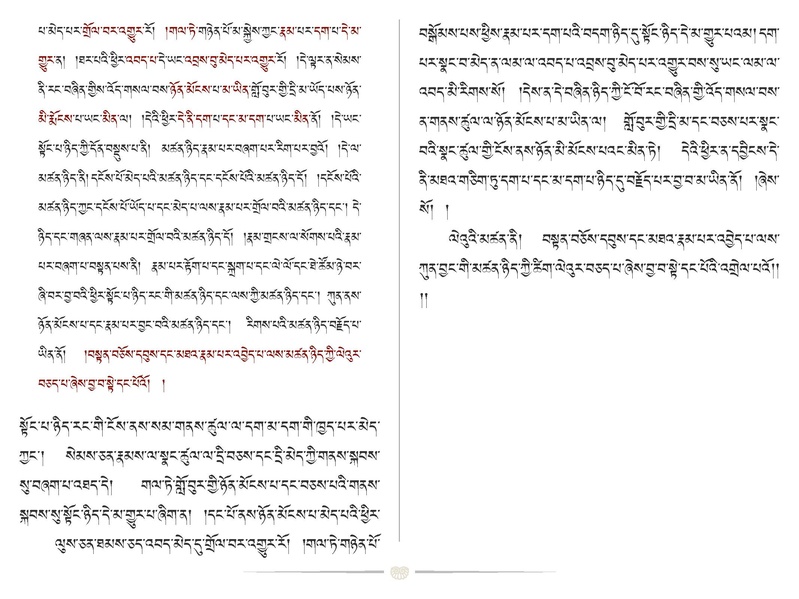 པ་མེད་པར་གྲོལ་བར་འགྱུར་རོ། །གལ་ཏེ་གཉེན་པོ་མ་སྐྱེས་ཀྱང་རྣམ་པར་དག་པ་དེ་མ་
གྱུར་ན། །ཐར་པའི་ཕྱིར་འབད་པ་དེ་ཡང་འབྲས་བུ་མེད་པར་འགྱུར་རོ། །དེ་ལྟར་ན་སེམས་
ནི་རང་བཞིན་གྱིས་འོད་གསལ་བས་ཉོན་མོངས་པ་མ་ཡིན་གློ་བུར་གྱི་དྲི་མ་ཡོད་པས་ཉོན་
མི་རྨོངས་པ་ཡང་མིན་ལ། །དེའི་ཕྱིར་དེ་ནི་དག་པ་དང་མ་དག་པ་ཡང་མིན་ནོ། །དེ་ཡང་
སྟོང་པ་ཉིད་ཀྱི་དོན་བསྡུས་པ་ནི། མཚན་ཉིད་རྣམ་པར་བཞག་པར་རིག་པར་བྱའོ། །དེ་ལ་
མཚན་ཉིད་ནི། དངོས་པོ་མེད་པའི་མཚན་ཉིད་དང་དངོས་པོའི་མཚན་ཉིད་དོ། །དངོས་པོའི་
མཚན་ཉིད་ཀྱང་དངོས་པོ་ཡོད་པ་དང་མེད་པ་ལས་རྣམ་པར་གྲོལ་བའི་མཚན་ཉིད་དང་། དེ་
ཉིད་དང་གཞན་ལས་རྣམ་པར་གྲོལ་བའི་མཚན་ཉིད་དོ། །རྣམ་གྲངས་ལ་སོགས་པའི་རྣམ་
པར་བཞག་པ་བསྟན་པས་ནི། རྣམ་པར་རྟོག་པ་དང་སྐྲག་པ་དང་ལེ་ལོ་དང་ཐེ་ཚོམ་ཉེ་བར་
ཞི་བར་བྱ་བའི་ཕྱིར་སྟོང་པ་ཉིད་རང་གི་མཚན་ཉིད་དང་ལས་ཀྱི་མཚན་ཉིད་དང་། ཀུན་ནས་
ཉོན་མོངས་པ་དང་རྣམ་པར་བྱང་བའི་མཚན་ཉིད་དང་། རིགས་པའི་མཚན་ཉིད་བརྗོད་པ་
ཡིན་ནོ། །བསྟན་བཅོས་དབུས་དང་མཐའ་རྣམ་པར་འབྱེད་པ་ལས་མཚན་ཉིད་ཀྱི་ལེའུར་
བཅད་པ་ཞེས་བྱ་བ་སྟེ་དང་པོའོ། །
སྟོང་པ་ཉིད་རང་གི་ངོས་ནས་སམ་གནས་ཚུལ་ལ་དག་མ་དག་གི་ཁྱད་པར་མེད་
ཀྱང་། སེམས་ཅན་རྣམས་ལ་སྣང་ཚུལ་ལ་དྲི་བཅས་དང་དྲི་མེད་ཀྱི་གནས་སྐབས་
སུ་བཞག་པ་འཐད་དེ། གལ་ཏེ་གློ་བུར་གྱི་ཉོན་མོངས་པ་དང་བཅས་པའི་གནས་
སྐབས་སུ་སྟོང་ཉིད་དེ་མ་གྱུར་པ་ཞིག་ན། །དང་པོ་ནས་ཉོན་མོངས་པ་མེད་པའི་ཕྱིར་
ལུས་ཅན་ཐམས་ཅད་འབད་མེད་དུ་གྲོལ་བར་འགྱུར་རོ། །གལ་ཏེ་གཉེན་པོ་
བསྒོམས་པས་ཕྱིས་རྣམ་པར་དག་པའི་བདག་ཉིད་དུ་སྟོང་ཉིད་དེ་མ་གྱུར་པའམ། དག་
པར་སྣང་བ་མེད་ན་ལམ་ལ་འབད་པ་འབྲས་བུ་མེད་པར་འགྱུར་བས་སུ་ཡང་ལམ་ལ་
འབད་མི་རིགས་སོ། །དེས་ན་དེ་བཞིན་ཉིད་ཀྱི་ངོ་བོ་རང་བཞིན་གྱི་འོད་གསལ་བས་
ན་གནས་ཚུལ་ལ་ཉོན་མོངས་པ་མ་ཡིན་ལ། གློ་བུར་གྱི་དྲི་མ་དང་བཅས་པར་སྣང་
བའི་སྣང་ཚུལ་གྱི་ངོས་ནས་ཉོན་མི་མོངས་པའང་མིན་ཏེ། དེའི་ཕྱིར་ན་དབྱིངས་དེ་
ནི་མཐའ་གཅིག་ཏུ་དག་པ་དང་མ་དག་པ་ཉིད་དུ་བརྗོད་པར་བྱ་བ་མ་ཡིན་ནོ། །ཞེས་
སོ། །
ལེའུའི་མཚན་ནི། བསྟན་བཅོས་དབུས་དང་མཐའ་རྣམ་པར་འབྱེད་པ་ལས་
ཀུན་བྱང་གི་མཚན་ཉིད་ཀྱི་ཚིག་ལེའུར་བཅད་པ་ཞེས་བྱ་བ་སྟེ་དང་པོའི་འགྲེལ་པའོ།།
།།